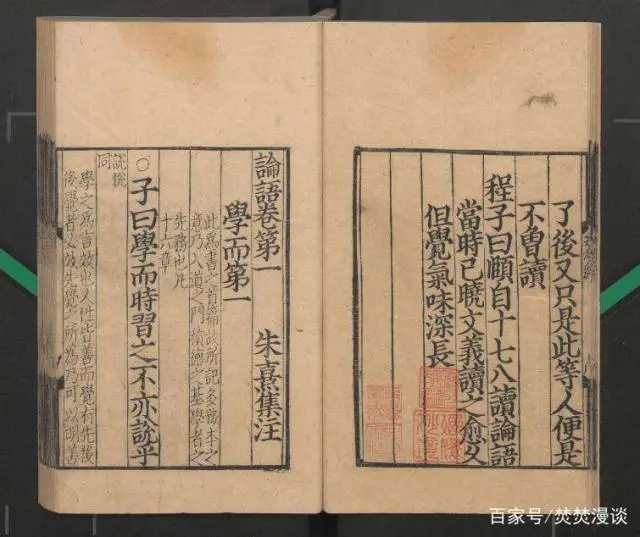 了後又只是此等人便是
不曽讀
程子曰頤自十七八讀論語
當時已曉文義讀之愈久
但覺氣味深長
論語卷第一 朱熹集注
學而第一
此爲書之首篇故所記多務本之
意乃入道之門積德之基學者之
先務也凡
十六章
○子曰學而時習之不亦說乎
說悅
同
學之爲言效也人性皆善而覺有先後
後覺者必效先覺之所爲乃可以明善
百家号/焚焚漫谈